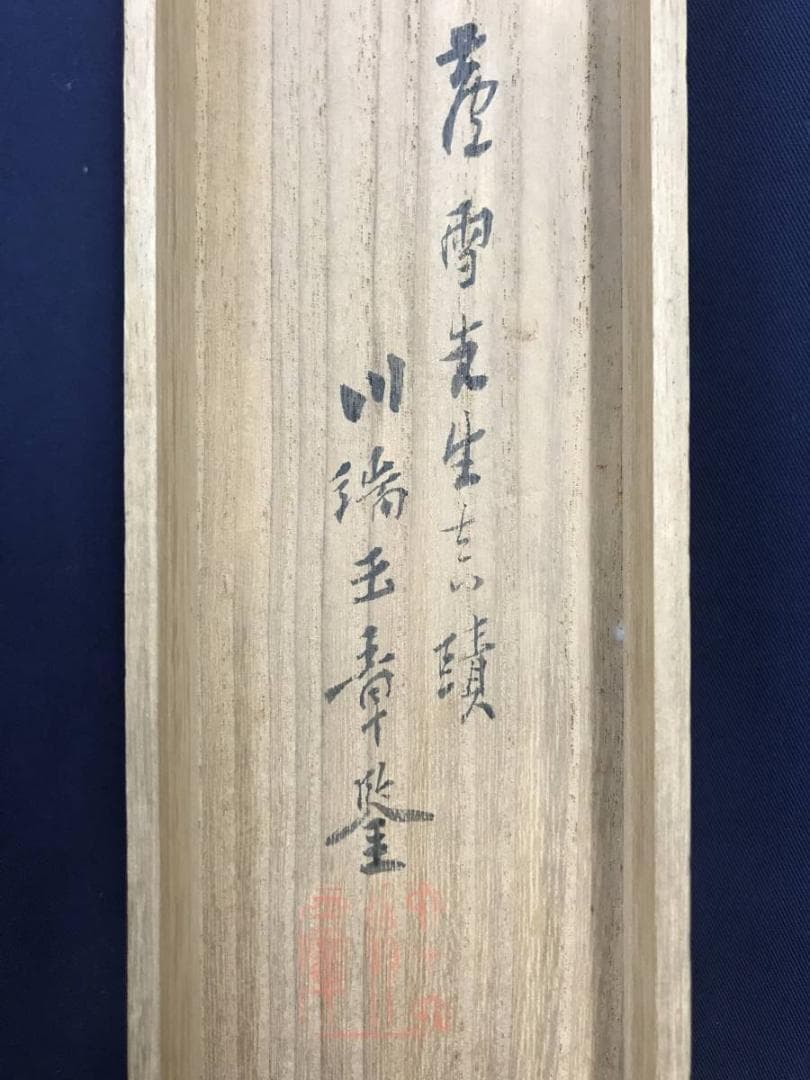 蘆雪先生真蹟
川端玉章鑒